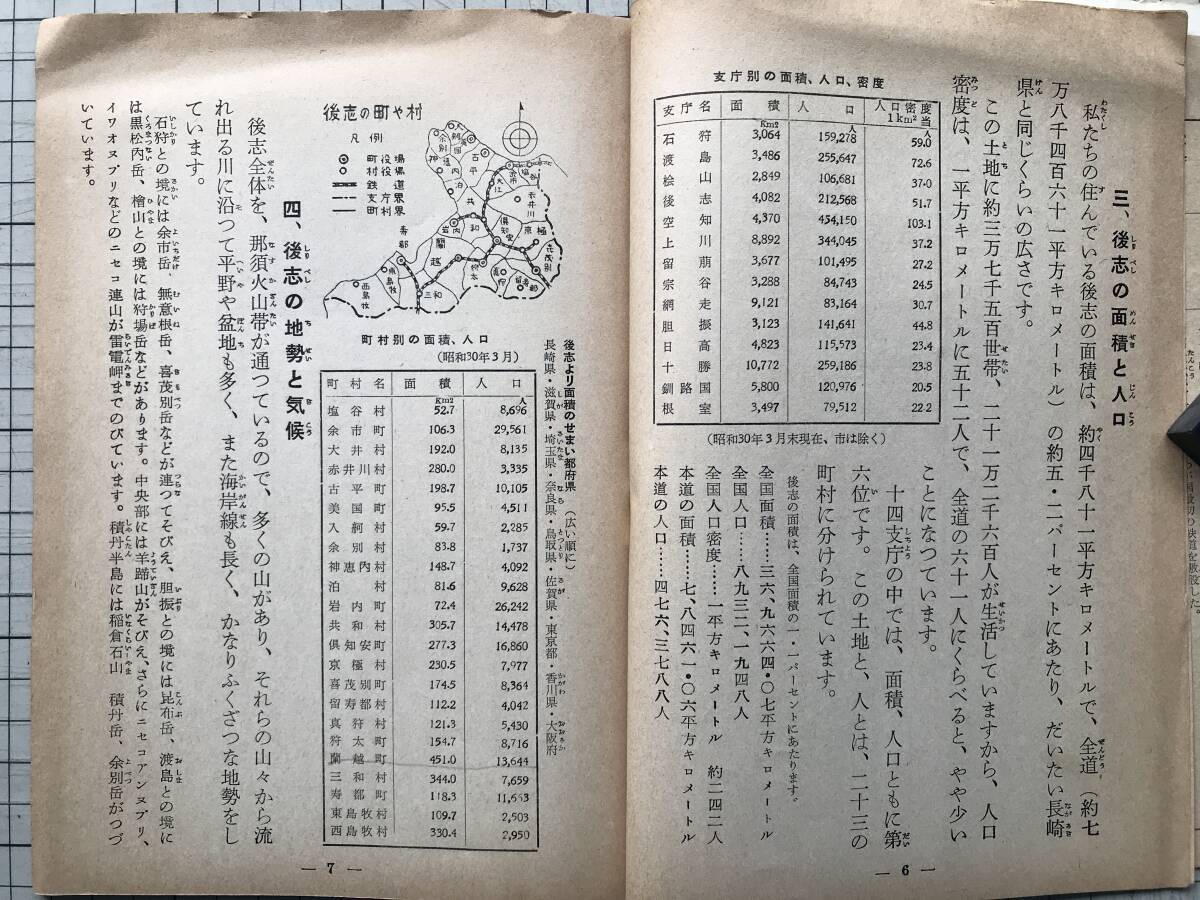 三、後志の面積と人口
私たちの住んでいる後志の面積は、約四千八十一平方キロメートルで、全道（約七
万八千四百六十一平方キロメートル）の約五・二パーセントにあたり、だいたい長崎
県と同じくらいの広さです。
この土地に約三万七千五百世帯、二十一万二千六百人が生活していますから、人口
密度は、一平方キロメートルに五十二人で、全道の六十一人にくらべると、やや少い
ことになつています。
十四支庁の中では、面積、人口ともに第
六位です。この土地と、人とは、二十三の
町村に分けられています。
後志の面積は、全国面積の一・一パーセントにあたります。
全国面積……三六、九六六四・〇七平方キロメートル
全国人口……八九三二、一九四八人
全国人口密度……一平方キロメートル 約二四二人
本道の面積……七、八四六一・〇六平方キロメートル
本道の人口……四七六、三七八八人
支庁別の面積、人口、密度
支庁名 面積 人口 人口密度1km²当
石狩 3,064Km2 159,278人 59.0人
渡島 3,486 255,647 72.6
桧山 2,849 106,681 37.0
後志 4,082 212,568 51.7
空知 4,370 454,150 103.1
上川 8,892 344,045 37.2
留萠 3,677 101,495 27.2
宗谷 3,288 84,743 24.5
網走 9,121 83,164 30.7
胆振 3,123 141,641 44.8
日高 4,823 115,573 23.4
十勝 10,772 259,186 23.8
釧路国 5,800 120,976 20.5
根室 3,497 79,512 22.2
（昭和30年3月末現在、市は除く）
— 6 —
後志より面積のせまい都府県（広い順に）
長崎県・滋賀県・埼玉県・奈良県・鳥取県・佐賀県・東京都・香川県・大阪府
後志の町や村
凡例
町役場
村役場
鉄道
支庁界
町村界
町村別の面積、人口
（昭和30年3月）
町村名 面積 人口
塩谷村 52.7Km2 8,696人
余市町 106.3 29,561
大井村 192.0 8,135
赤井川村 280.0 3,335
古平町 198.7 10,105
美国町 95.5 4,511
入舸村 59.7 2,285
余別村 83.8 1,737
神恵内村 148.7 4,092
泊村 81.6 9,628
岩内町 72.4 26,242
共和村 305.7 14,478
倶知安町 277.3 16,860
京極村 230.5 7,977
喜茂別町 174.5 8,364
留寿都村 112.2 4,042
真狩村 121.3 5,430
狩太町 154.7 8,716
蘭越町 451.0 13,644
三和村 344.0 7,659
寿都町 118.3 11,553
東島牧村 109.7 2,503
西島牧村 330.4 2,950
四、後志の地勢と気候
後志全体を、那須火山帯が通つているので、多くの山があり、それらの山々から流
れ出る川に沿つて平野や盆地も多く、また海岸線も長く、かなりふくざつな地勢をし
ています。
石狩との境には余市岳、無意根岳、喜茂別岳などが連つてそびえ、胆振との境には昆布岳、渡島との境に
は黒松内岳、檜山との境には狩場岳などがあります。中央部には羊蹄山がそびえ、さらにニセコアンヌプリ、
イワオヌプリなどのニセコ連山が雷電岬までのびています。積丹半島には稲倉石山 積丹岳、余別岳がつづ
いています。
— 7 —